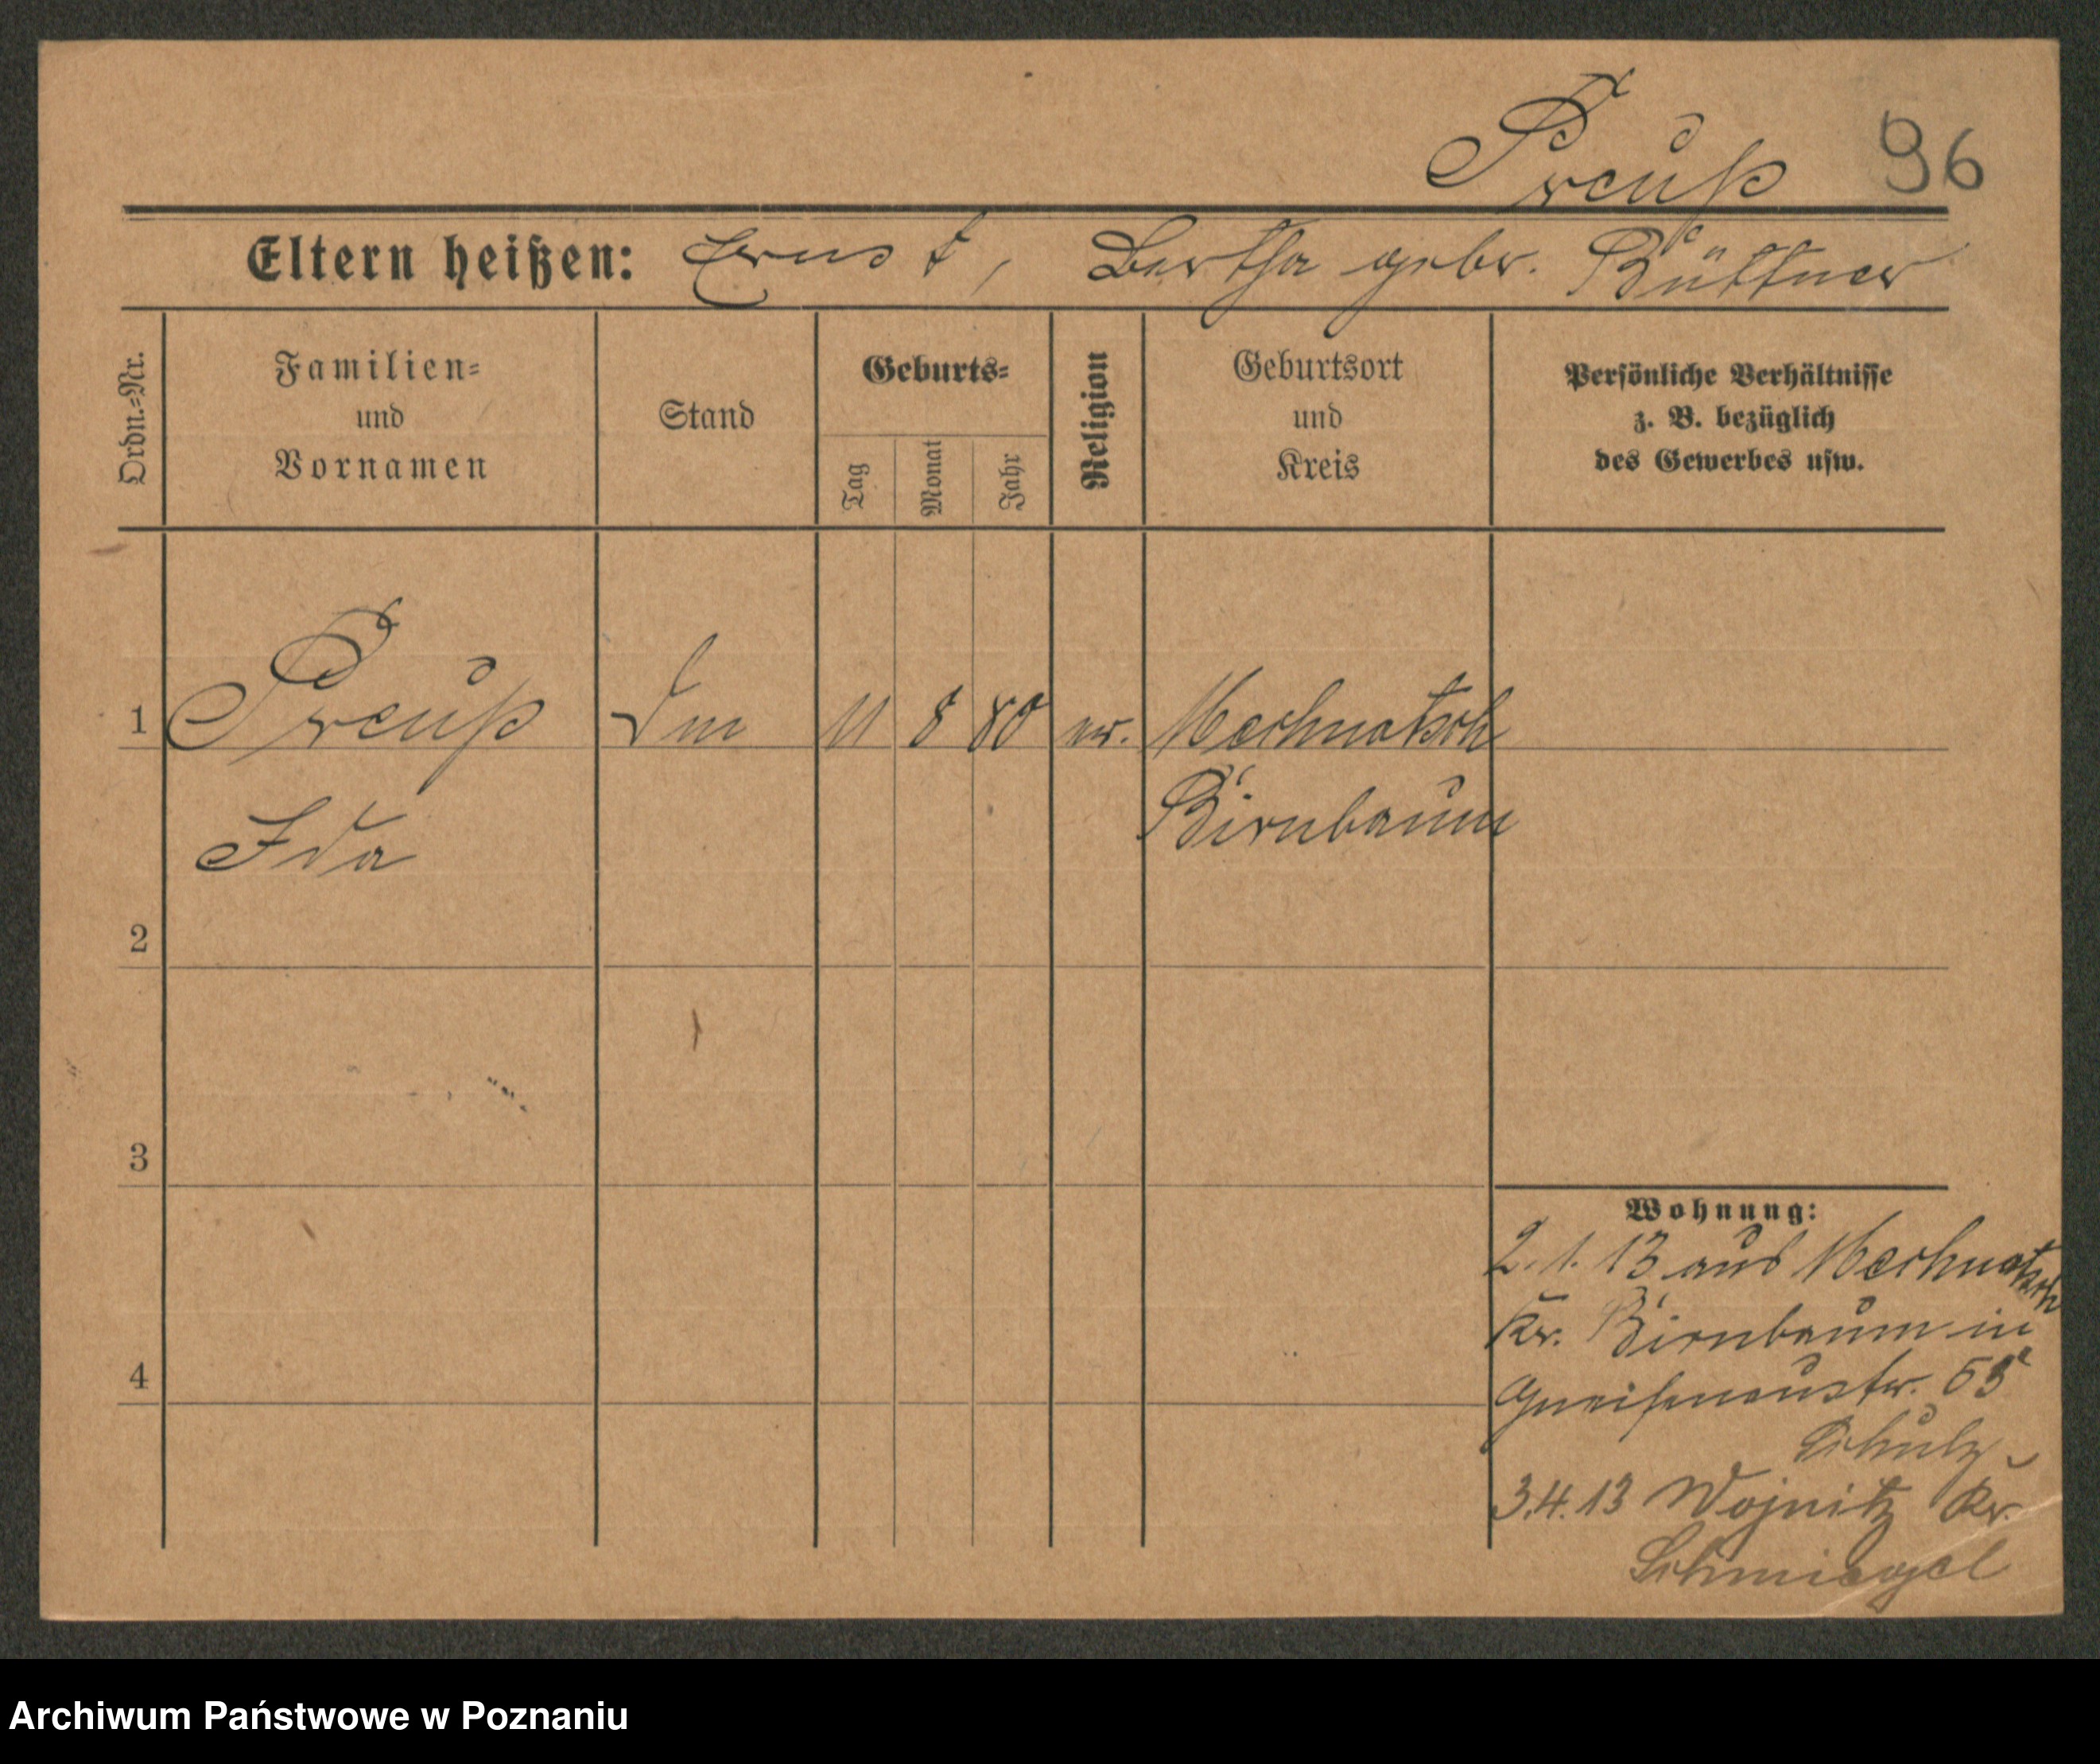 Preuß 96
Eltern heißen: Ernst, Bertha gebr. Büttner
Ordn.=Nr.
Familien=
und
Vornamen
Stand
Geburts=
Tag
Monat
Jahr
Religion
Geburtsort
und
Kreis
Persönliche Verhältnisse
z. B. bezüglich
des Gewerbes usw.
1 Preuß 11 8 80 Mechnatsch
Birnbaum
Ida
2
3
4
Wohnung:
2.1.13 aus Mechnatsch
Kr. Birnbaum in
Gneisenaustr.
Schulz
3.4.13 Wojnitz Kr.
Schmiegel
Archiwum Państwowe w Poznaniu